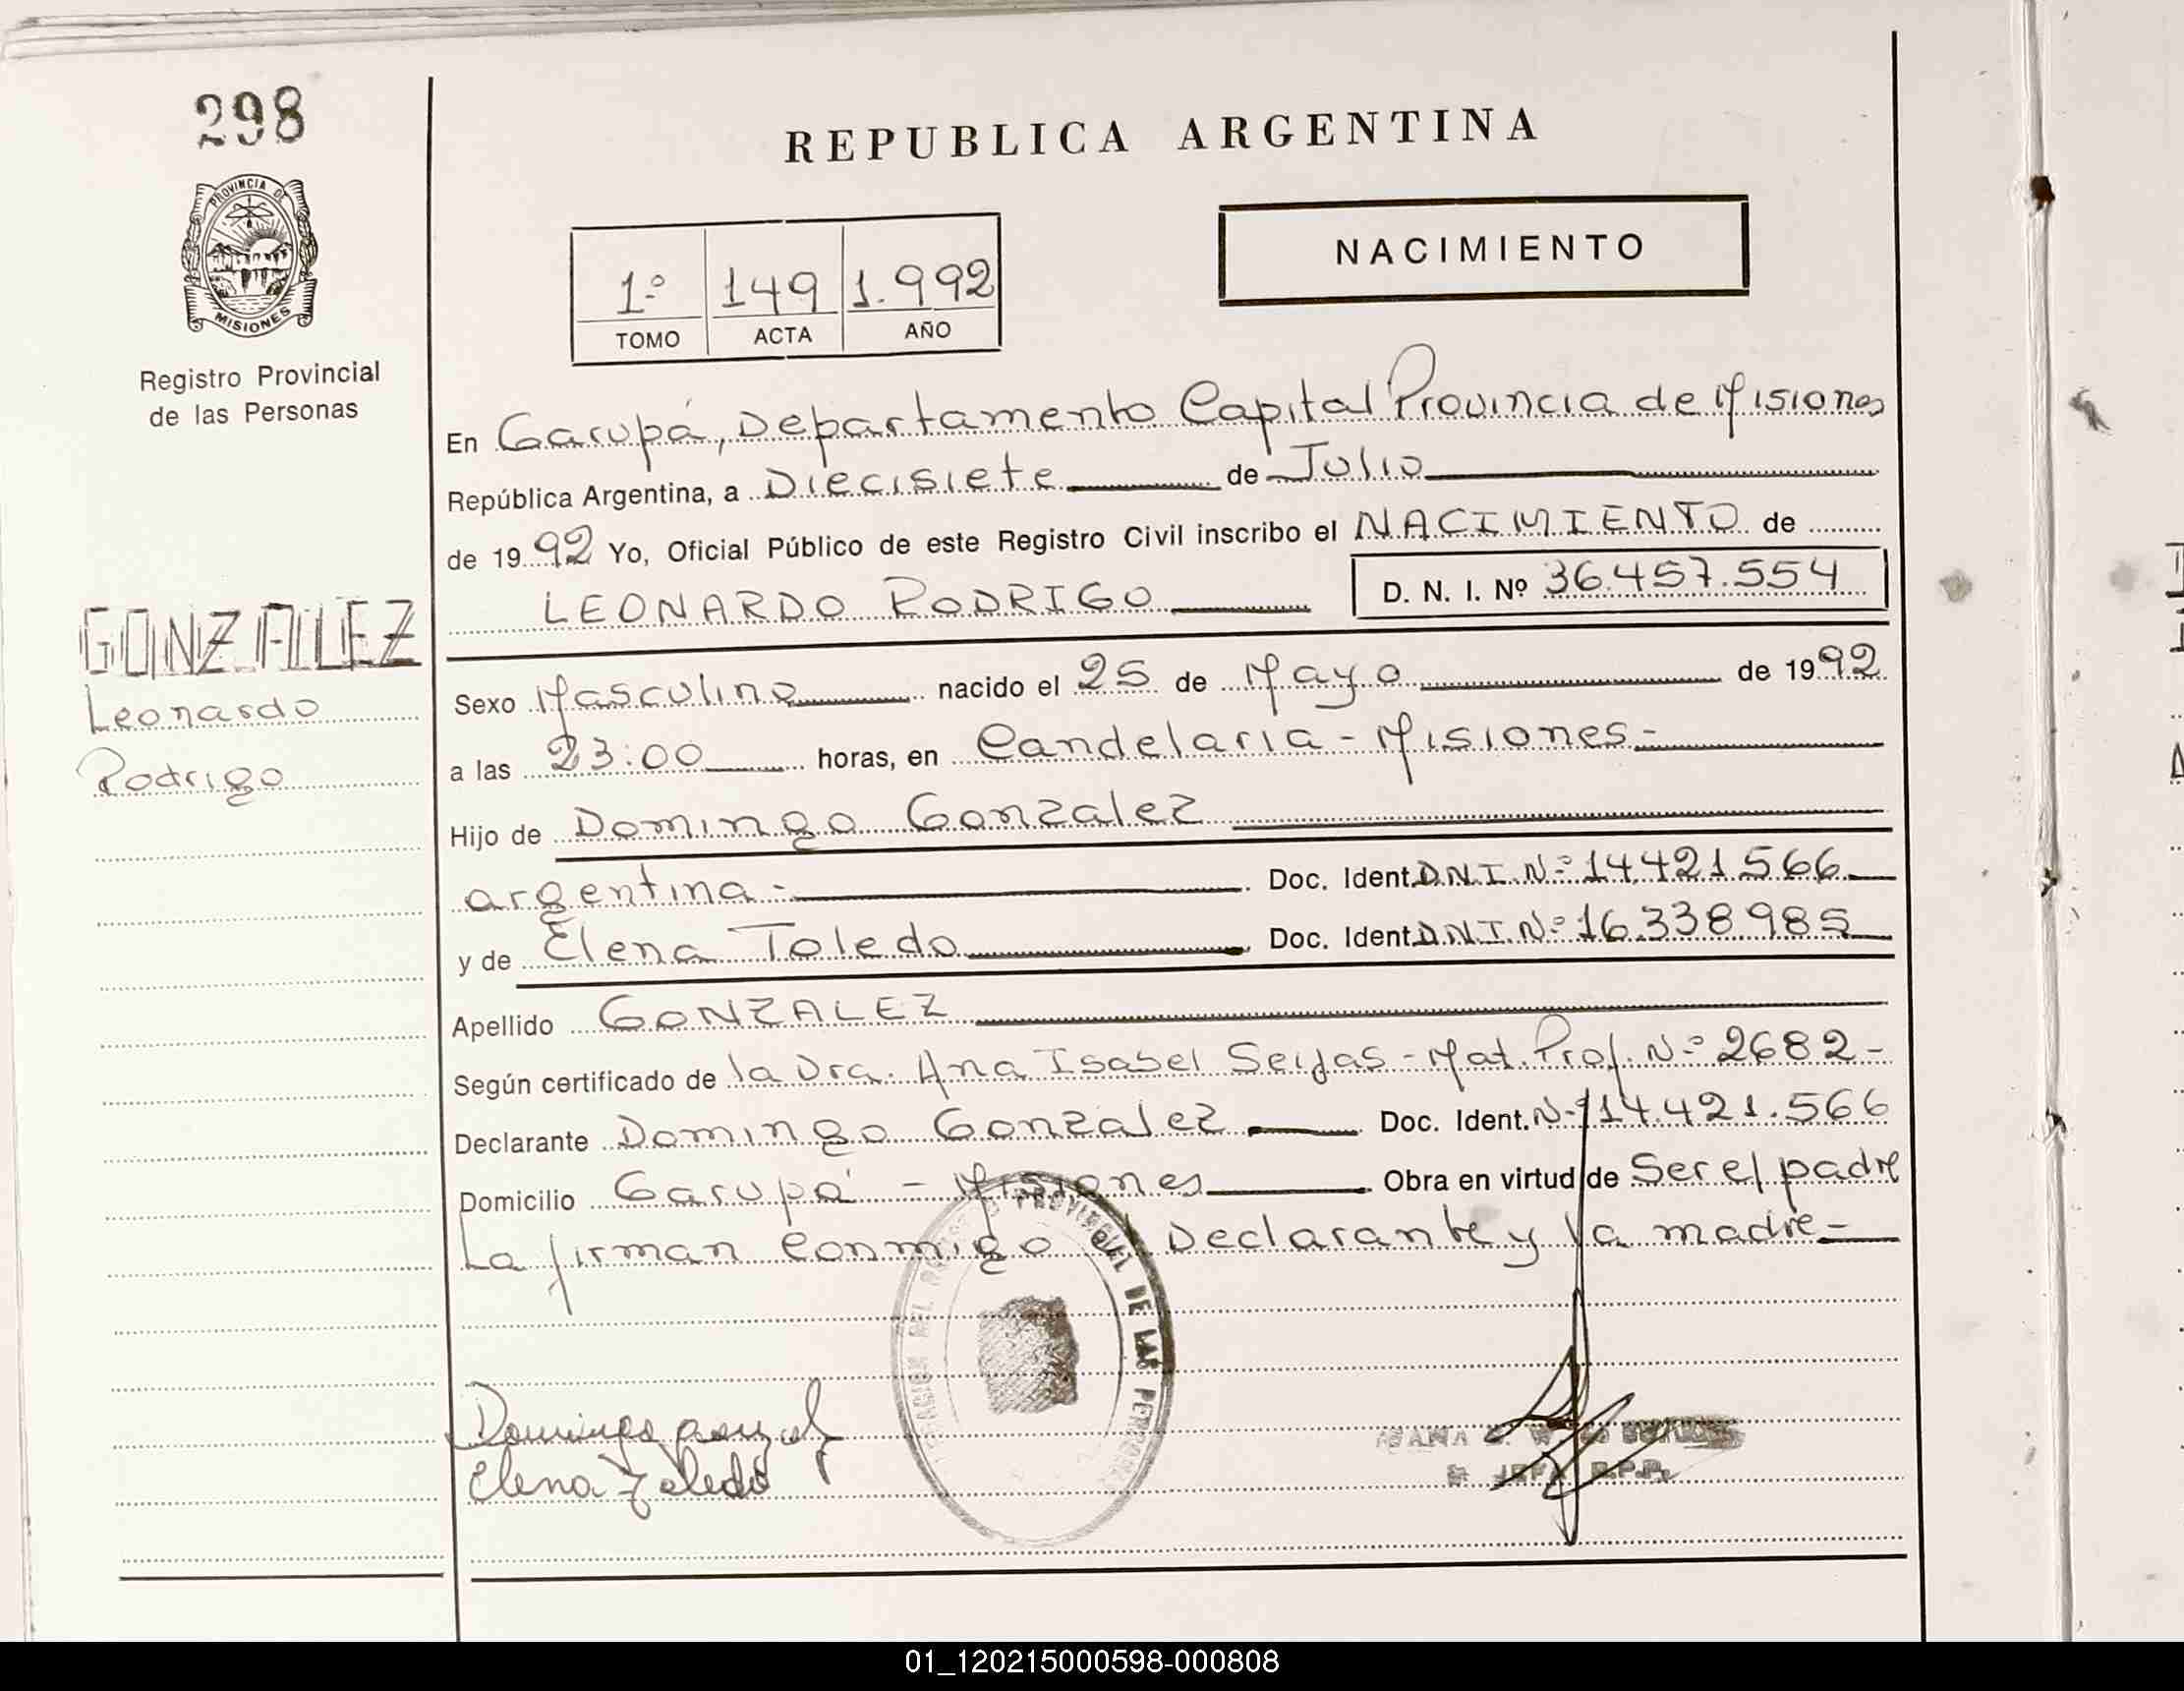 298
PROVINCIA DE
MISIONES
Registro Provincial
de las Personas
GONZALEZ
Leonardo
Rodrigo
REPUBLICA ARGENTINA
1º 149 1.992
TOMO ACTA AÑO
NACIMIENTO
En Garupá, Departamento Capital Provincia de Misiones
República Argentina, a Diecisiete de Julio
de 1992 Yo, Oficial Público de este Registro Civil inscribo el NACIMIENTO de
LEONARDO RODRIGO D. N. I. Nº 36.457.554
Sexo Masculino nacido el 25 de Mayo de 1992
a las 23:00 horas, en Candelaria - Misiones -
Hijo de Domingo Gonzalez
argentina - Doc. Ident. D.N.I. Nº 14.421.566
y de Elena Toledo Doc. Ident. D.N.I. Nº 16.338.985
Apellido GONZALEZ
Según certificado de la Dra. Ana Isabel Seijas - Mat. Prof. Nº 2682 -
Declarante Domingo Gonzalez Doc. Ident. Nº 14.421.566
Domicilio Garupá - Misiones Obra en virtud de Ser el padre
La firman conmigo el Declarante y la madre -
PROVINCIAL DE LAS
Domingo Gonzalez
Elena Toledo
JEFA R.P.P.
01_120215000598-000808